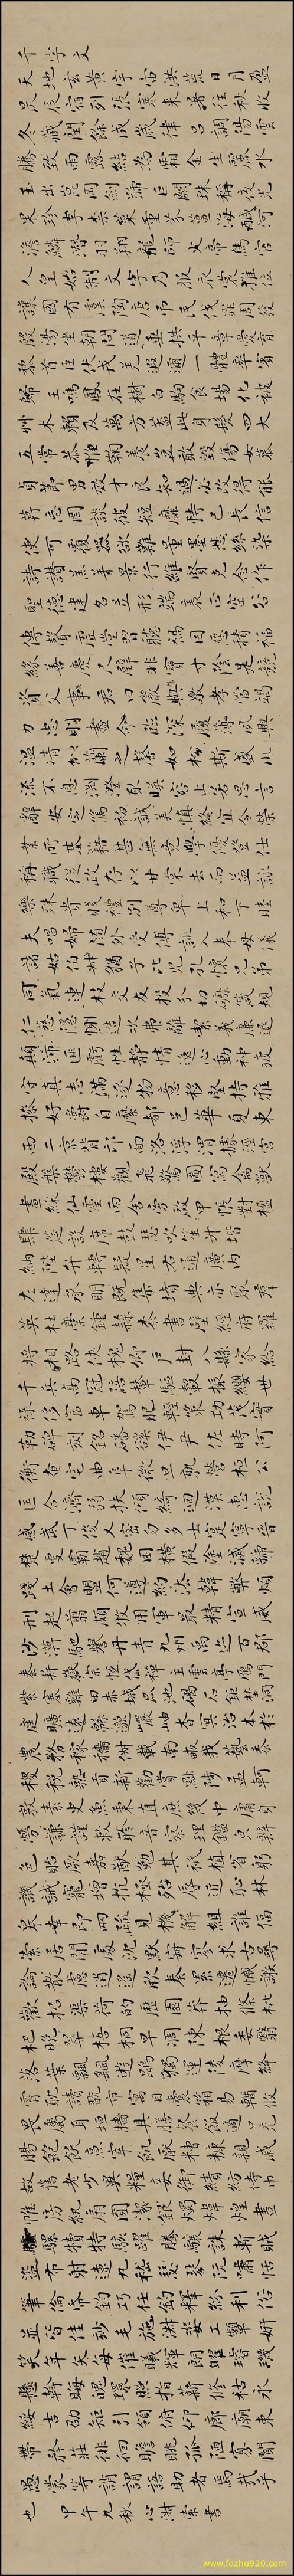 千字文
天地玄黃宇宙洪荒日月盈
昃辰宿列張寒來暑往秋收
冬藏閏餘成歲律呂調陽雲
騰致雨露結為霜金生麗水
玉出崑岡劍號巨闕珠稱夜光
果珍李柰菜重芥薑海鹹河
淡鱗潛羽翔龍師火帝鳥官
人皇始制文字乃服衣裳推位
讓國有虞陶唐弔民伐罪周發
殷湯坐朝問道垂拱平章愛育
黎首臣伏戎羌遐邇一體率賓
歸王鳴鳳在樹白駒食場化被
草木賴及萬方蓋此身髮四大
五常恭惟鞠養豈敢毀傷女慕
貞節男效才良知過必改得能
莫忘罔談彼短靡恃己長信
使可覆器欲難量墨悲絲染
詩讚羔羊景行維賢克念作
聖德建名立形端表正空谷
傳聲虛堂習聽禍因惡積福
緣善慶尺璧非寶寸陰是競
資父事君曰嚴與敬孝當竭
力忠則盡命臨深履薄夙興
溫凊似蘭之馨如松斯盛川
流不息淵澄取映容止若思言
辭安定篤初誠美慎終宜令榮
業所基藉甚無竟學優登仕
攝職從政存以甘棠去而益詠
樂殊貴賤禮別尊卑上和下睦
夫唱婦隨外受傅訓入奉母儀
諸姑伯叔猶子比兒孔懷兄弟
同氣連枝交友投分切磨箴規
仁慈隱惻造次弗離節義廉退
顛沛匪虧性靜情逸心動神疲
守真志滿逐物意移堅持雅
操好爵自縻都邑華夏東
西二京背邙面洛浮渭據涇宮
殿盤鬱樓觀飛驚圖寫禽獸
畫綵仙靈丙舍傍啟甲帳對楹
肆筵設席鼓瑟吹笙升階
納陛弁轉疑星右通廣內
左達承明既集墳典亦聚群
英杜稾鍾隸漆書壁經府羅
將相路俠槐卿戶封八縣家給
千兵高冠陪輦驅轂振纓世
祿侈富車駕肥輕策功茂實
勒碑刻銘磻溪伊尹佐時阿
衡奄宅曲阜微旦孰營桓公
匡合濟弱扶傾綺迴漢惠說
感武丁俊乂密勿多士寔寧晉
楚更霸趙魏困橫假途滅虢
踐土會盟何遵約法韓弊煩
刑起翦頗牧用軍最精宣威
沙漠馳譽丹青九州禹跡百郡
秦并嶽宗恆岱禪主云亭雁門
紫塞雞田赤城昆池碣石鉅野洞
庭曠遠緜邈巖岫杳冥治本於
農務茲稼穡俶載南畝我藝黍
稷稅熟貢新勸賞黜陟孟軻
敦素史魚秉直庶幾中庸
勞謙謹敕聆音察理鑑貌辨
色貽厥嘉猷勉其祗植省躬
譏誡寵增抗極殆辱近恥林
皋幸即兩疏見機解組誰逼
索居閒處沈默寂寥求古尋
論散慮逍遙欣奏累遣慼謝
歡招渠荷的歷園莽抽條枇
杷晚翠梧桐早凋陳根委翳
落葉飄颻遊鵾獨運凌摩絳
霄耽讀翫市寓目囊箱易輶攸
畏屬耳垣牆具膳飡飯適口充
腸飽飫烹宰飢厭糟糠親戚
故舊老少異糧妾御績紡侍巾
帷房紈扇圓潔銀燭煒煌晝
驢騾犢特駭躍超驤誅斬賊
盜布射遼丸嵇琴阮嘯恬
筆倫紙鈞巧任釣釋紛利俗
並皆佳妙毛施淑姿工顰妍
笑年矢每催曦暉朗曜璿璣
懸斡晦魄環照指薪修祜永
綏吉劭矩步引領俯仰廊廟束
帶矜莊徘徊瞻眺孤陋寡聞
愚蒙等誚謂語助者焉哉乎
也 甲午九秋
www.fozhu920.com